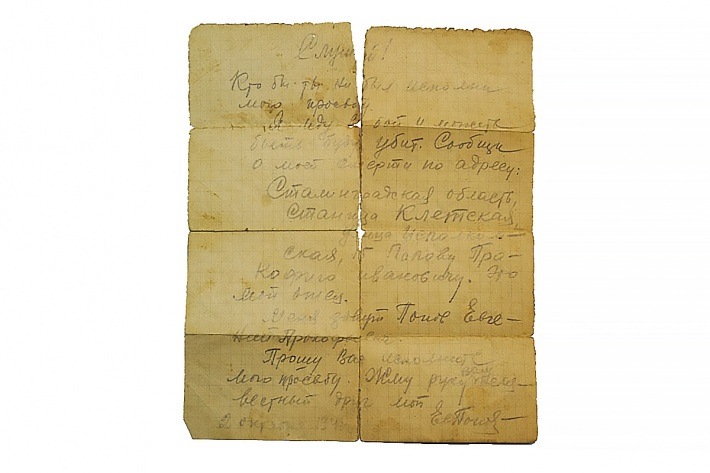 Слушай!
Кто бы ты ни был исполни
мою просьбу.
Я иду в бой и может
быть буду убит. Сообщи
о моей смерти по адресу:
Сталинградская область,
Станица Клетская,
улица
ская, Попову Про-
кофию Ивановичу. Это
мой отец.
Меня зовут Попов Евге-
ний Прокофьевич.
Прошу Вас исполнить
мою просьбу. Жму руку неиз-
вестный друг мой
Е. Попов
2 194